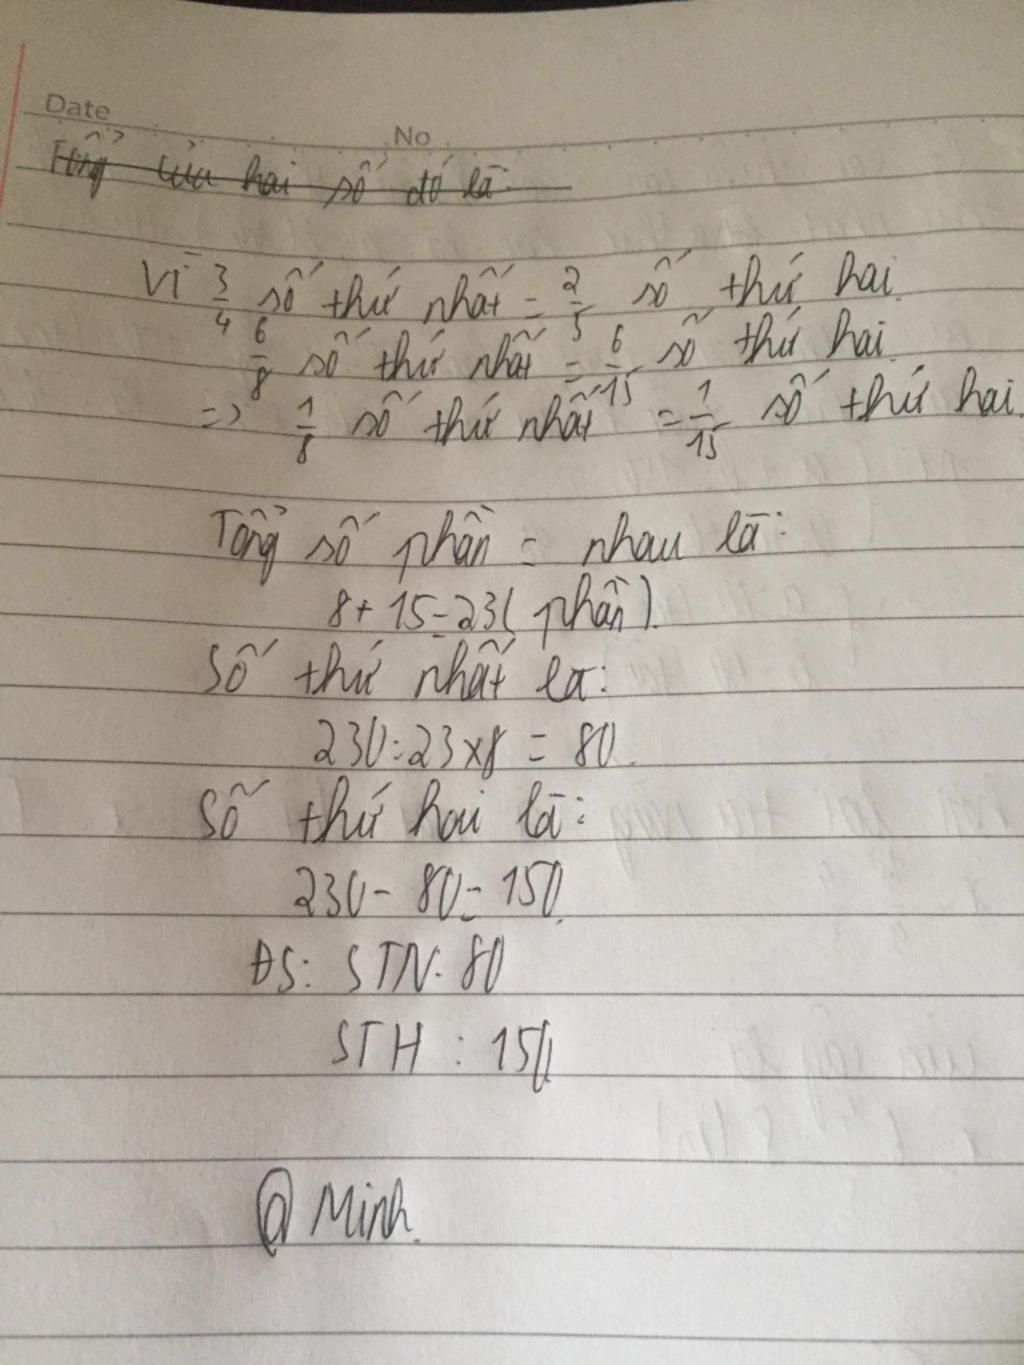 Date
No
Tổng của hai số đó là:
Vì 3/4 số thứ nhất = 2/5 số thứ hai.
6/8 số thứ nhất = 6/15 số thứ hai.
=> 1/8 số thứ nhất = 1/15 số thứ hai.
Tổng số phần = nhau là:
8 + 15 = 23 ( phần ).
Số thứ nhất là:
230 : 23 x 8 = 80.
Số thứ hai là:
230 - 80 = 150.
ĐS: STN: 80
STH : 150.
@ Minh.